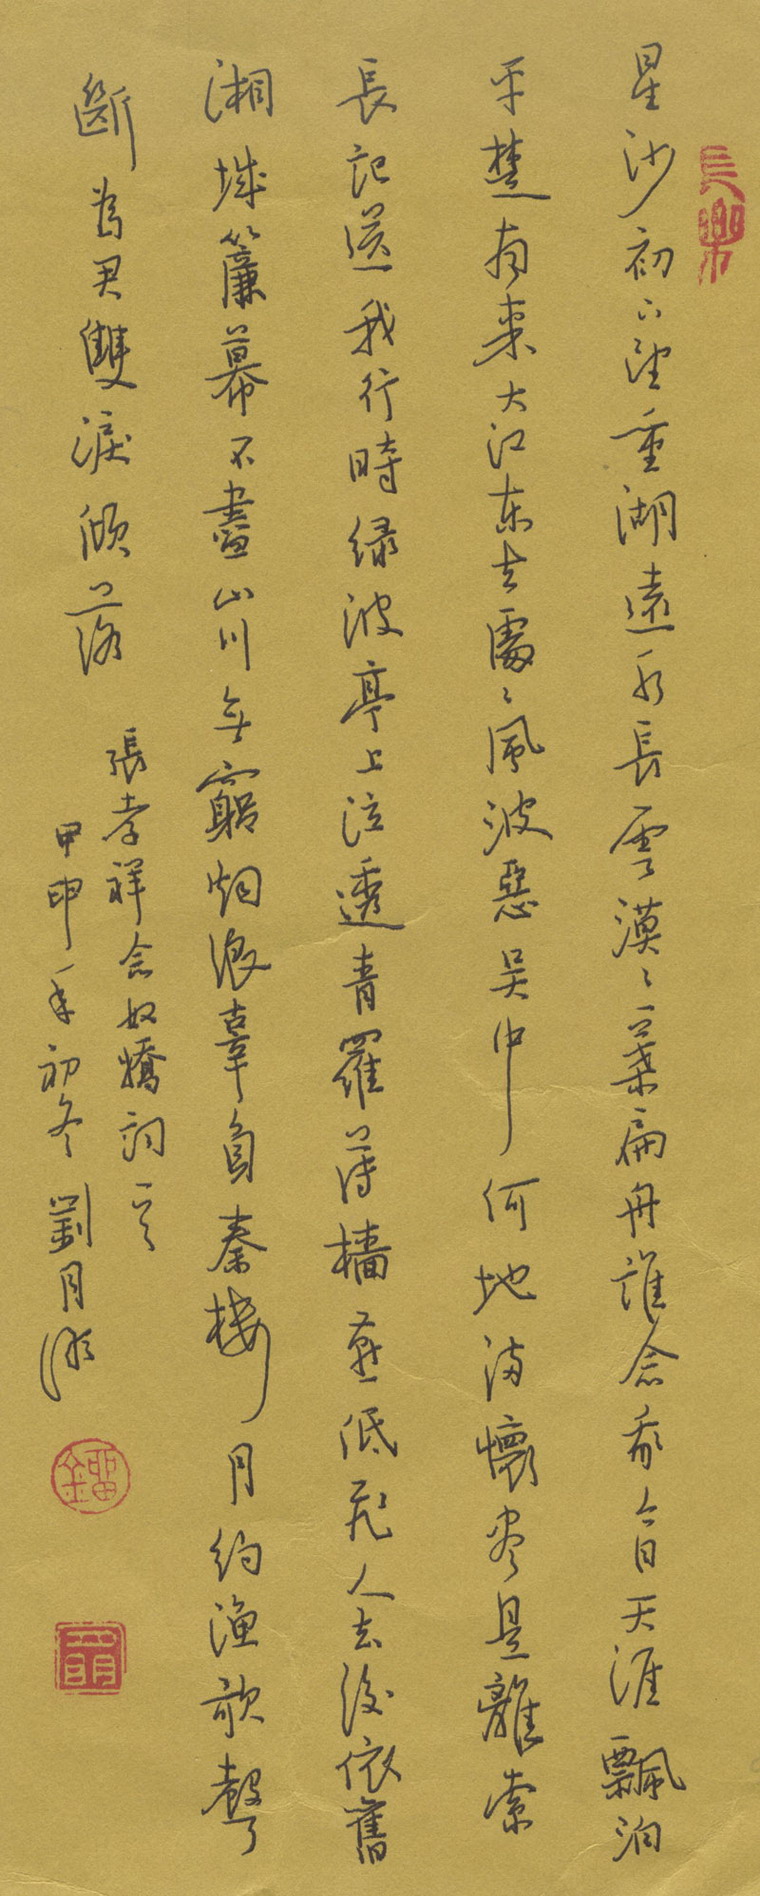 長樂
星沙初下望重湖遠水長雲漠漠一葉扁舟誰念我今日天涯飄泊
平楚南來大江東去處處風波惡吴中何地滿懷盡是離索
長記送我行時绿波亭上泣透青羅薄檣燕低飛人去後依舊
湘城簾幕不盡山川無窮烟浪辜負秦樓月約漁歌聲
斷為君雙淚傾落
張孝祥念奴嬌詞一首
甲申年初冬 劉月